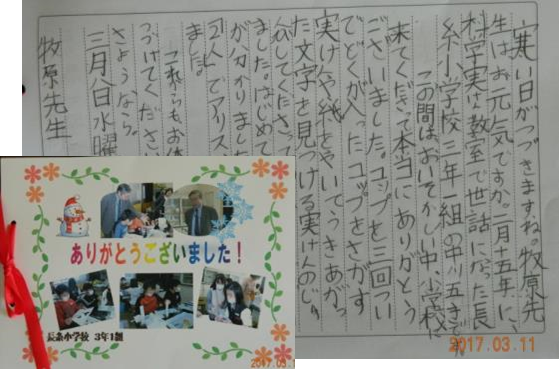 寒い日がつづきますね。牧原先
生はお元気ですか
科学実けん教室で世話になった長
小学校三年一組の中川
この間は、おいそがしい中、小学校に
来てくださって本当にありがとう
ございました。コップを三回つい
でどくが入ったコップをさがす
実けんや紙をやいてうきあがっ
た文字を見つける実けんのしょ
介してくださって
ました。はじめて
が分かりました
でアリス
ました。
これからもお体
つづけてください
さようなら。
三月八日水曜
牧原先生
ありがとうございました!
長糸小学校 3年1組
2017.03.1
2017.03.11